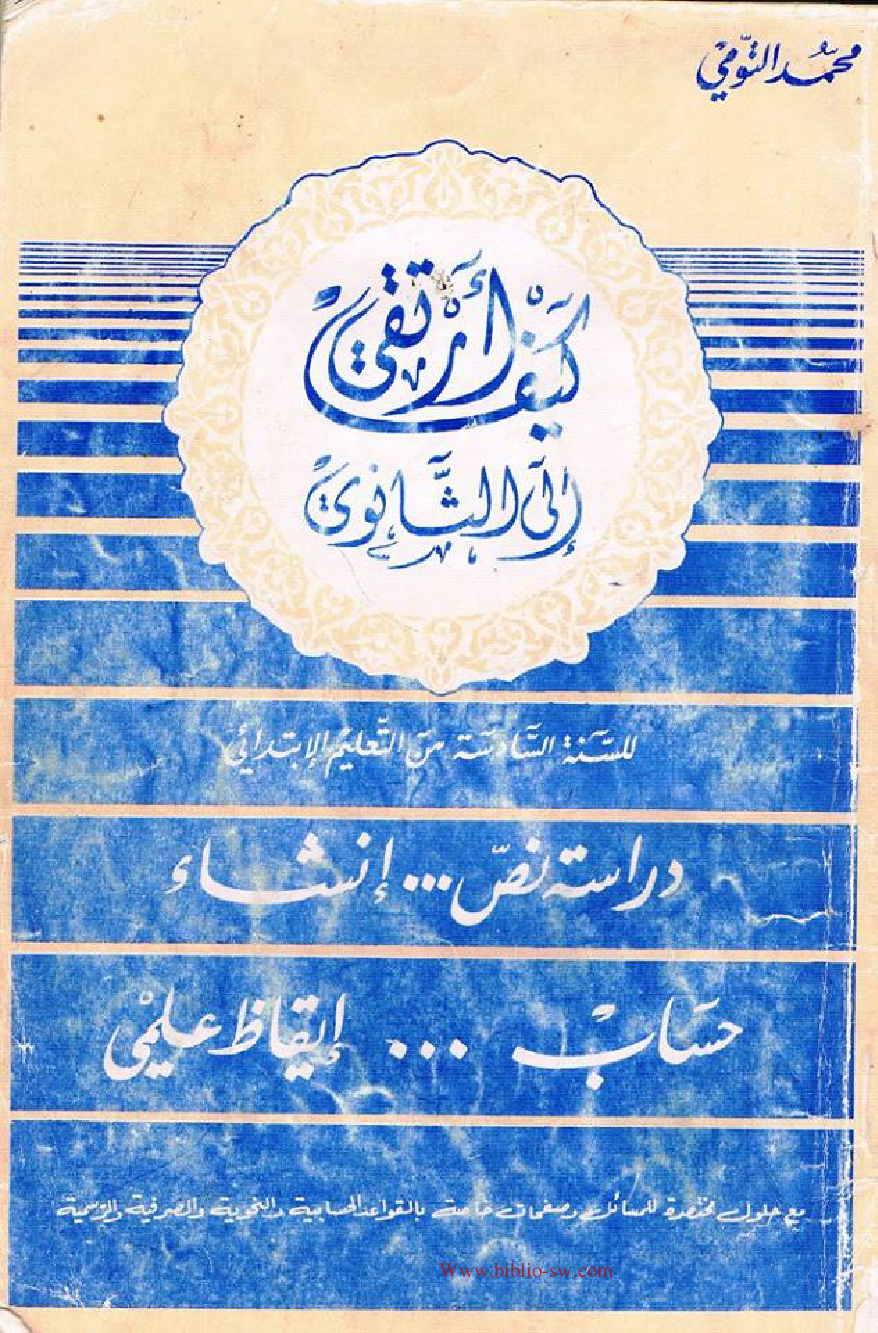 محمّد التّومي
كَيْفَ أَرْتَقِي
إلَى الثَّانوِي
للسَّنة السَّادسَة من التَّعليم الإبتدائي
دراسة نصّ ... إنشاء
حسَابْ ... إيقاظ علمي
مع حلول مختصرة للمسائل وصفحات خاصة بالقواعد الحسابية والنحوية والصرفية والرسمية
Www.biblio-sw.com